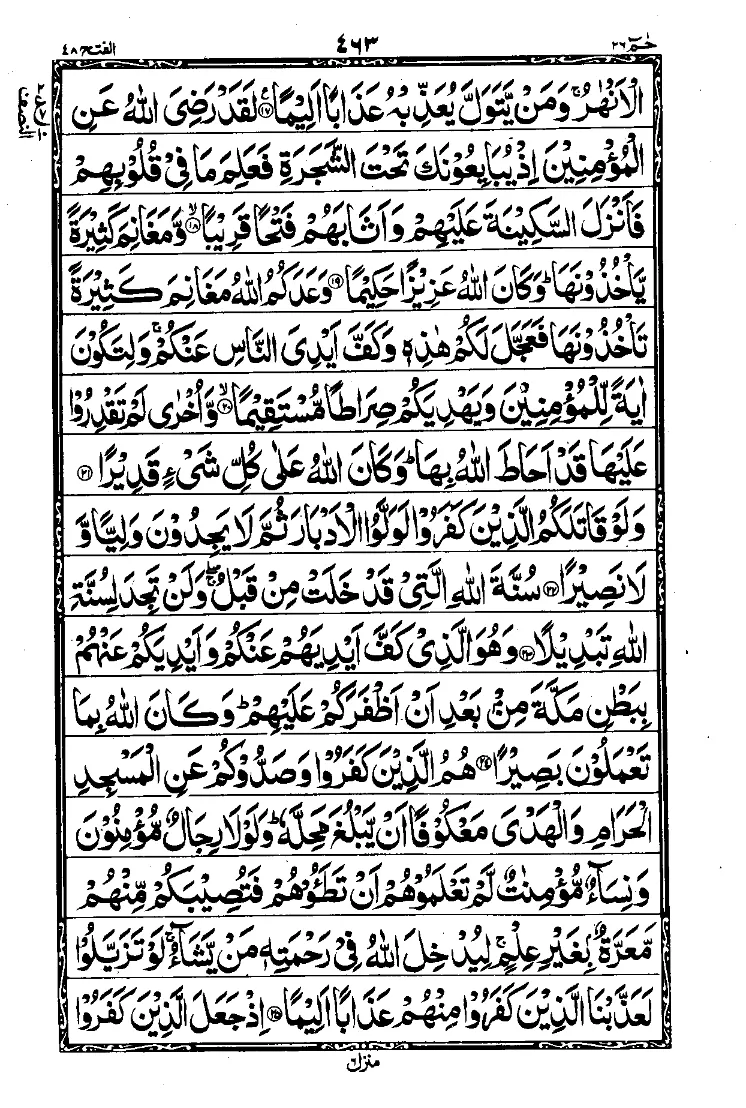 حٰمٓ ٢٦
٤٦٣
الفتح ٤٨
النصف
الْاَنْهٰرُ ۚ وَمَنْ يَّتَوَلَّ يُعَذِّبْهُ عَذَابًا اَلِيْمًا ۧ﴿١٧﴾ لَقَدْ رَضِىَ اللّٰهُ عَنِ
الْمُؤْمِنِيْنَ اِذْ يُبَايِعُوْنَكَ تَحْتَ الشَّجَرَةِ فَعَلِمَ مَا فِىْ قُلُوْبِهِمْ
فَاَنْزَلَ السَّكِيْنَةَ عَلَيْهِمْ وَاَثَابَهُمْ فَتْحًا قَرِيْبًا ۙ﴿١٨﴾ وَّمَغَانِمَ كَثِيْرَةً
يَّاْخُذُوْنَهَا ؕ وَكَانَ اللّٰهُ عَزِيْزًا حَكِيْمًا ﴿١٩﴾ وَعَدَكُمُ اللّٰهُ مَغَانِمَ كَثِيْرَةً
تَاْخُذُوْنَهَا فَعَجَّلَ لَكُمْ هٰذِهٖ وَكَفَّ اَيْدِىَ النَّاسِ عَنْكُمْ ۚ وَلِتَكُوْنَ
اٰيَةً لِّلْمُؤْمِنِيْنَ وَيَهْدِيَكُمْ صِرَاطًا مُّسْتَقِيْمًا ۙ﴿٢٠﴾ وَّاُخْرٰى لَمْ تَقْدِرُوْا
عَلَيْهَا قَدْ اَحَاطَ اللّٰهُ بِهَا ؕ وَكَانَ اللّٰهُ عَلٰى كُلِّ شَىْءٍ قَدِيْرًا ﴿٢١﴾
وَلَوْ قَاتَلَكُمُ الَّذِيْنَ كَفَرُوْا لَوَلَّوُا الْاَدْبَارَ ثُمَّ لَا يَجِدُوْنَ وَلِيًّا وَّ
لَا نَصِيْرًا ﴿٢٢﴾ سُنَّةَ اللّٰهِ الَّتِىْ قَدْ خَلَتْ مِنْ قَبْلُ ۖۚ وَلَنْ تَجِدَ لِسُنَّةِ
اللّٰهِ تَبْدِيْلًا ﴿٢٣﴾ وَهُوَ الَّذِىْ كَفَّ اَيْدِيَهُمْ عَنْكُمْ وَاَيْدِيَكُمْ عَنْهُمْ
بِبَطْنِ مَكَّةَ مِنْۢ بَعْدِ اَنْ اَظْفَرَكُمْ عَلَيْهِمْ ؕ وَكَانَ اللّٰهُ بِمَا
تَعْمَلُوْنَ بَصِيْرًا ﴿٢٤﴾ هُمُ الَّذِيْنَ كَفَرُوْا وَصَدُّوْكُمْ عَنِ الْمَسْجِدِ
الْحَرَامِ وَالْهَدْىَ مَعْكُوْفًا اَنْ يَّبْلُغَ مَحِلَّهٗ ؕ وَلَوْلَا رِجَالٌ مُّؤْمِنُوْنَ
وَنِسَآءٌ مُّؤْمِنٰتٌ لَّمْ تَعْلَمُوْهُمْ اَنْ تَطَـُٔوْهُمْ فَتُصِيْبَكُمْ مِّنْهُمْ
مَّعَرَّةٌۢ بِغَيْرِ عِلْمٍ ۚ لِيُدْخِلَ اللّٰهُ فِىْ رَحْمَتِهٖ مَنْ يَّشَآءُ ۚ لَوْ تَزَيَّلُوْا
لَعَذَّبْنَا الَّذِيْنَ كَفَرُوْا مِنْهُمْ عَذَابًا اَلِيْمًا ﴿٢٥﴾ اِذْ جَعَلَ الَّذِيْنَ كَفَرُوْا
منزل ٦